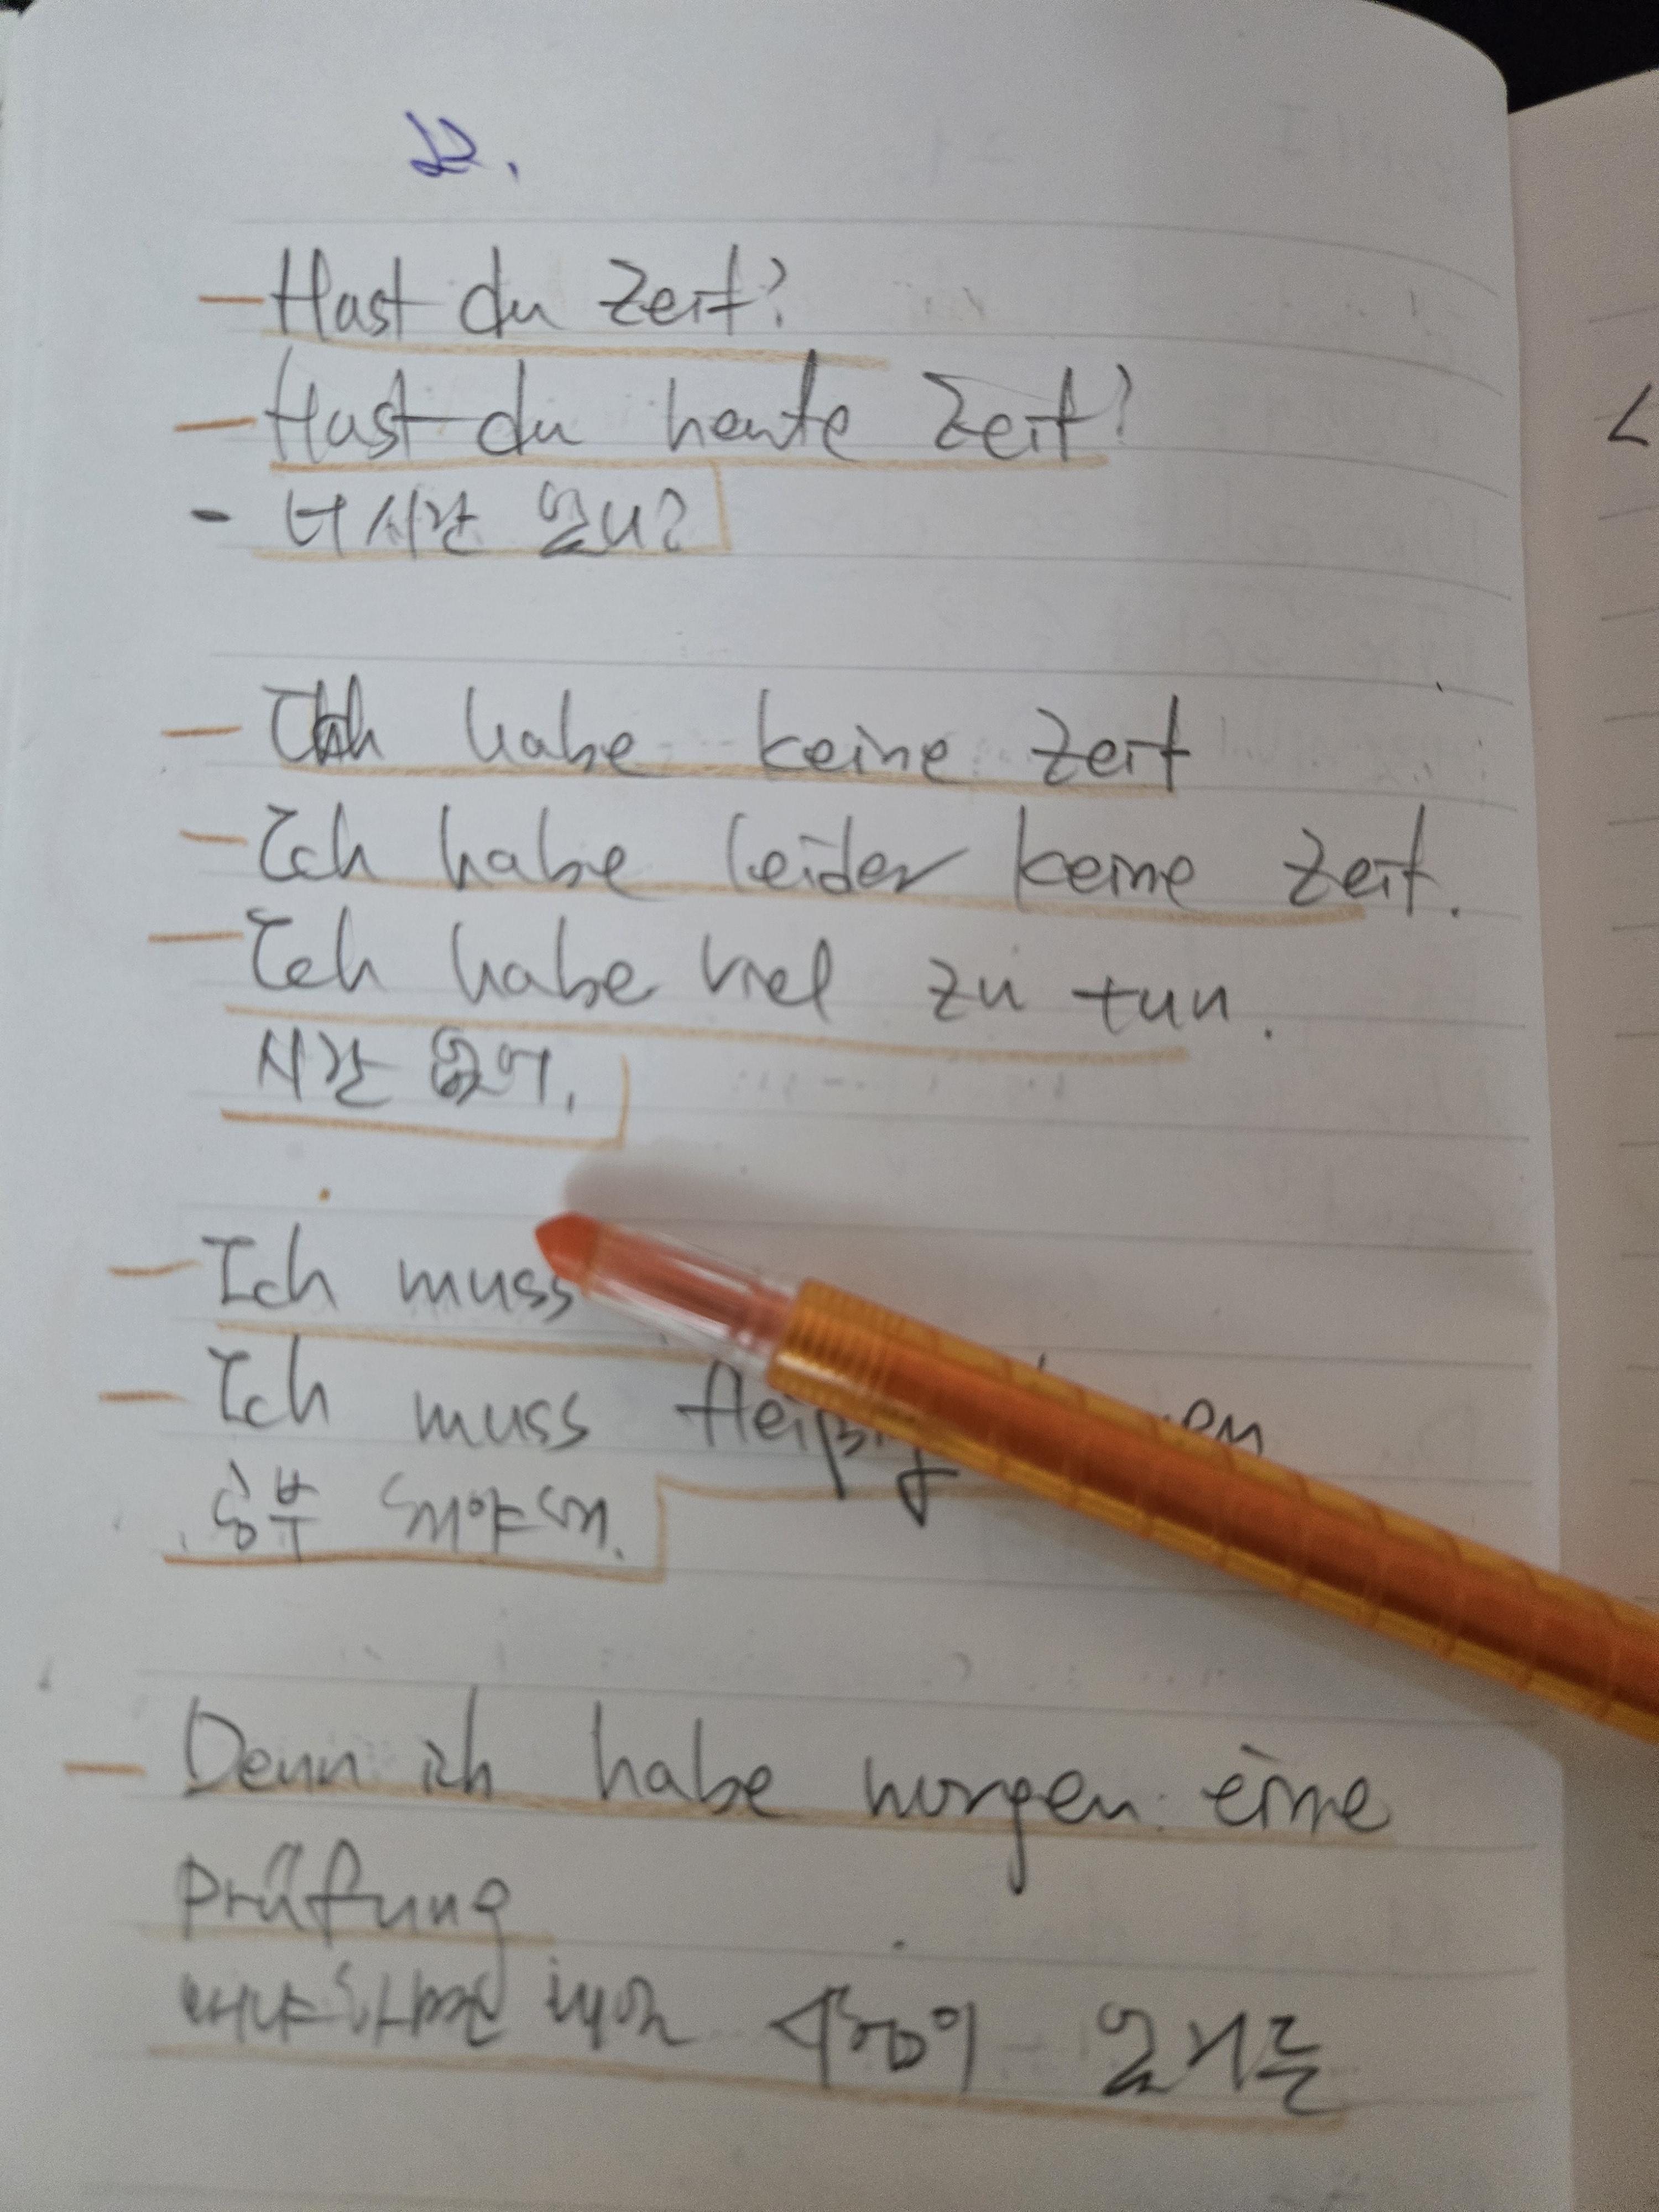 - Hast du Zeit?
- Hast du heute Zeit?
- 너 시간 있니?
- Ich habe keine Zeit
- Ich habe leider keine Zeit.
- Ich habe viel zu tun.
시간 없어.
- Ich muss
- Ich muss fleißig
공부 해야 해.
- Denn ich habe morgen eine
Prüfung
왜냐하면 내일 시험이 있거든